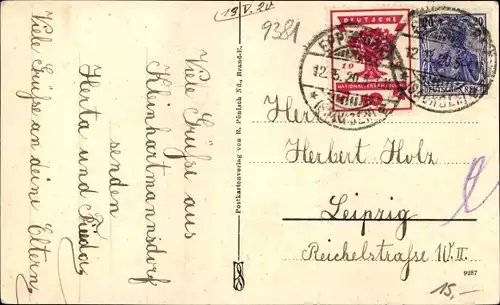 13.V.20
9381
Viele Grüße aus
Kleinhartmannsdorf
senden
Herta und Fiedor
Viele Grüsse an deine Eltern
Postkartenverlag von R. Pöntsch Nf., Brand-E.
DEUTSCHE
10
NATIONALVERSAMMLUNG
20
EPPENDORF
12.5.20
Herrn
Herbert Holz
Leipzig
Reichelstraße 10. II.
9287
15,-